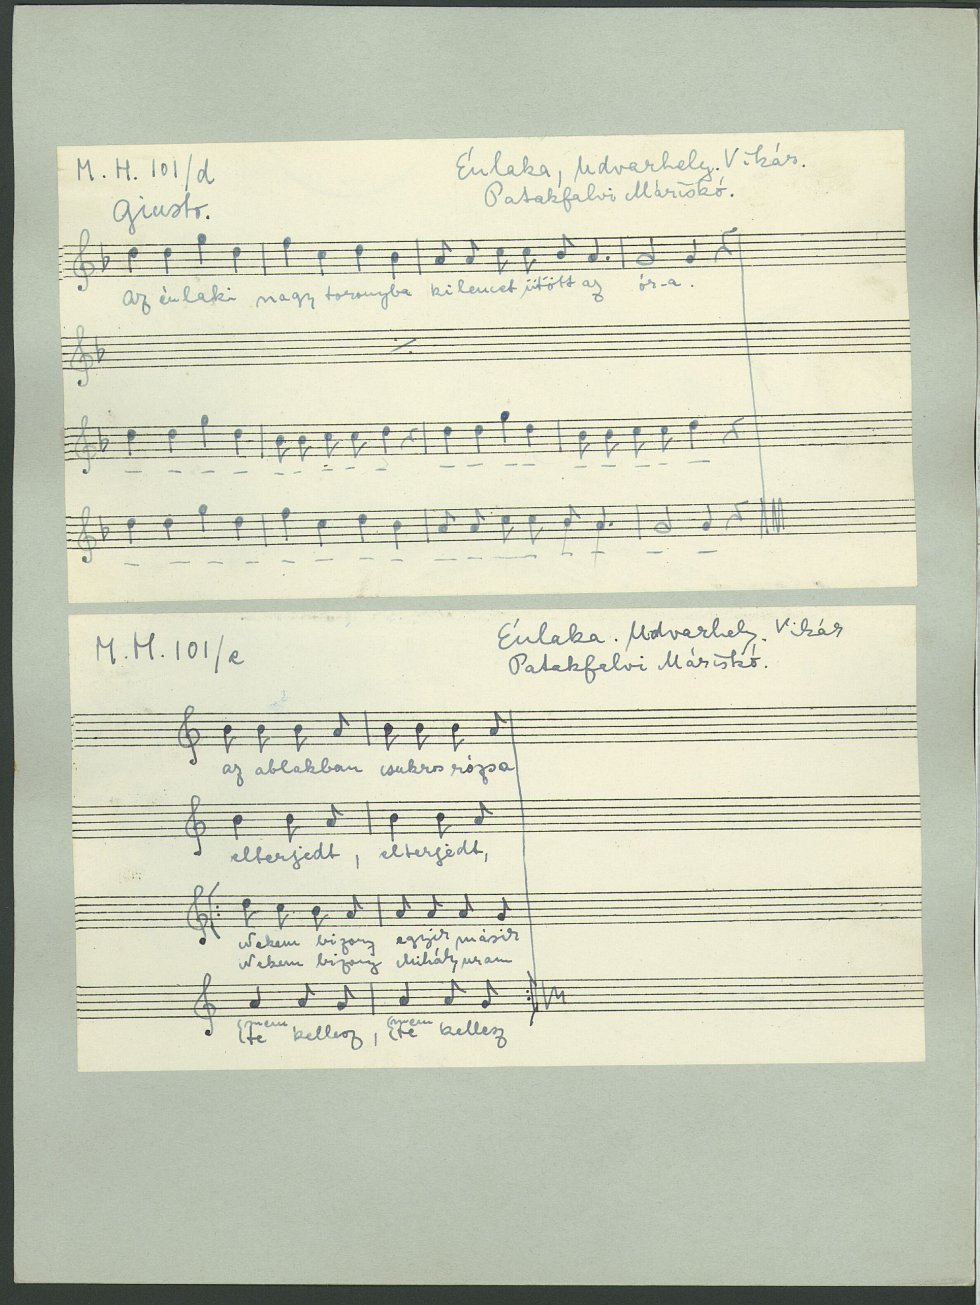 M. H. 101/d
Énlaka, Udvarhely. Vikár.
Giusto.
Patakfalvi Máriskó.
az énlaki nagy toronyba kilencet ütött az ór-a.
M. H. 101/e
Énlaka. Udvarhely. Vikár
Patakfalvi Máriskó.
az ablakban csukros rózsa
elterjedt, elterjedt,
Nekem bizony egyér másér
Nekem bizony Mihály uram
nem nem
te kellesz, te kellesz